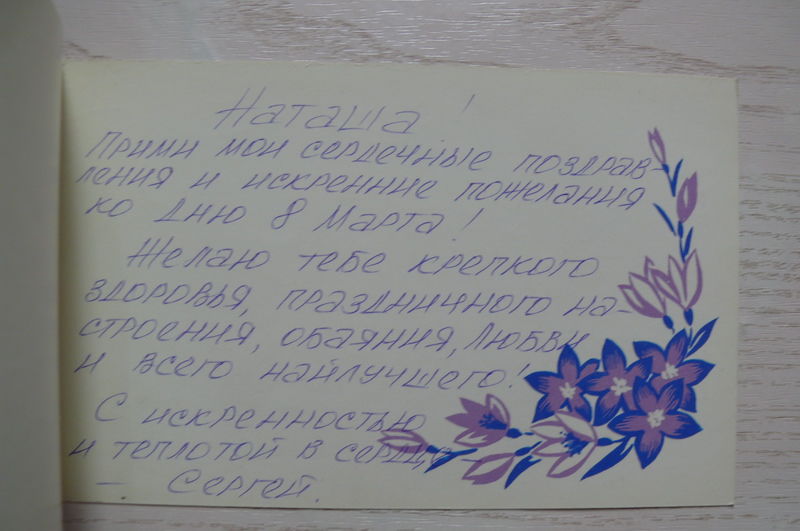 Наташа!
Прими мои сердечные поздрав-
ления и искренние пожелания
ко Дню 8 Марта!
Желаю тебе крепкого
здоровья, праздничного на-
строения, обаяния, любви
и всего найлучшего!
С искренностью
и теплотой в сердце
— Сергей.